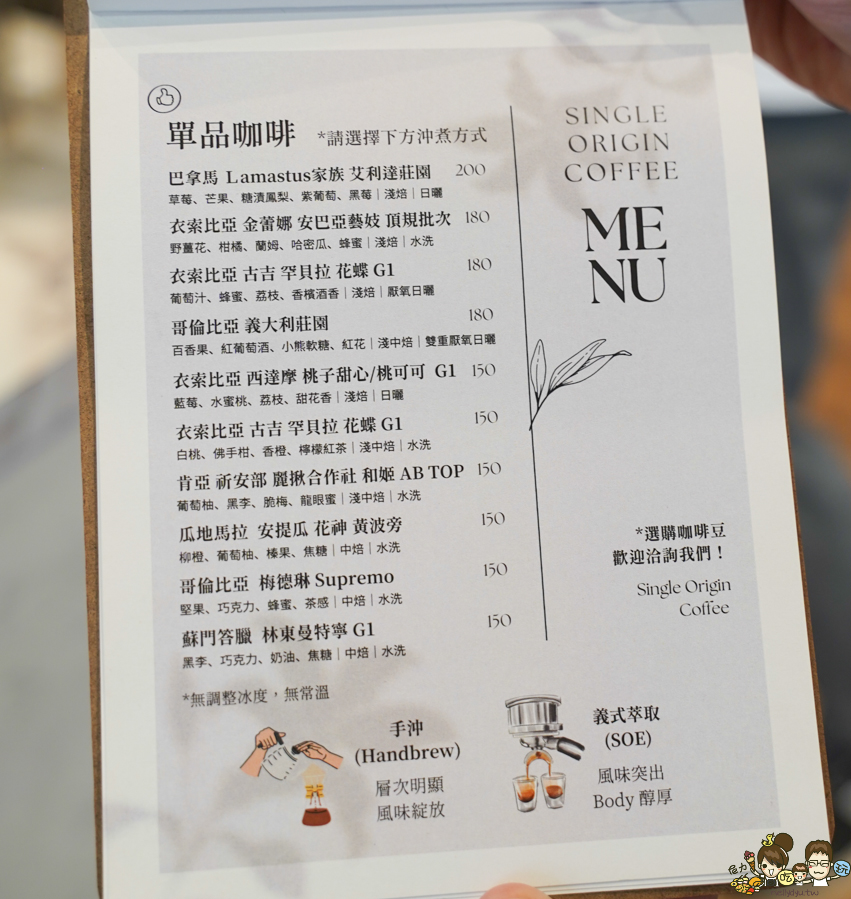 單品咖啡 *請選擇下方沖煮方式
巴拿馬 Lamastus家族 艾利達莊園 200
草莓、芒果、糖漬鳳梨、紫葡萄、黑莓｜淺焙｜日曬
衣索比亞 金蕾娜 安巴亞藝妓 頂規批次 180
野薑花、柑橘、蘭姆、哈密瓜、蜂蜜｜淺焙｜水洗
衣索比亞 古吉 罕貝拉 花蝶 G1 180
葡萄汁、蜂蜜、荔枝、香檳酒香｜淺焙｜厭氧日曬
哥倫比亞 義大利莊園 180
百香果、紅葡萄酒、小熊軟糖、紅花｜淺中焙｜雙重厭氧日曬
衣索比亞 西達摩 桃子甜心/桃可可 G1 150
藍莓、水蜜桃、荔枝、甜花香｜淺焙｜日曬
衣索比亞 古吉 罕貝拉 花蝶 G1 150
白桃、佛手柑、香橙、檸檬紅茶｜淺中焙｜水洗
肯亞 祈安部 麗揪合作社 和姬 AB TOP 150
葡萄柚、黑李、脆梅、龍眼蜜｜淺中焙｜水洗
瓜地馬拉 安提瓜 花神 黃波旁 150
柳橙、葡萄柚、榛果、焦糖｜中焙｜水洗
哥倫比亞 梅德琳 Supremo 150
堅果、巧克力、蜂蜜、茶感｜中焙｜水洗
蘇門答臘 林東曼特寧 G1 150
黑李、巧克力、奶油、焦糖｜中焙｜水洗
*無調整冰度，無常溫
手沖
(Handbrew)
層次明顯
風味綻放
義式萃取
(SOE)
風味突出
Body 醇厚
SINGLE
ORIGIN
COFFEE
ME
NU
*選購咖啡豆
歡迎洽詢我們！
Single Origin
Coffee